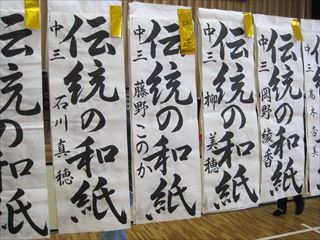 伝統の和紙
伝統の和紙
中三 石川真穂
伝統の和紙
中三 藤野このか
伝統の和紙
中三 柳美穂
伝統の和紙
中三 岡野綾香
中三 高木杏美